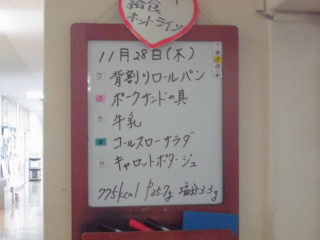 給食
ホットライン
11月28日(木)
背割りロールパン
ポークサンドの具
牛乳
コールスローサラダ
キャロットポタージュ
775kcal P35.7g 塩分3.3g